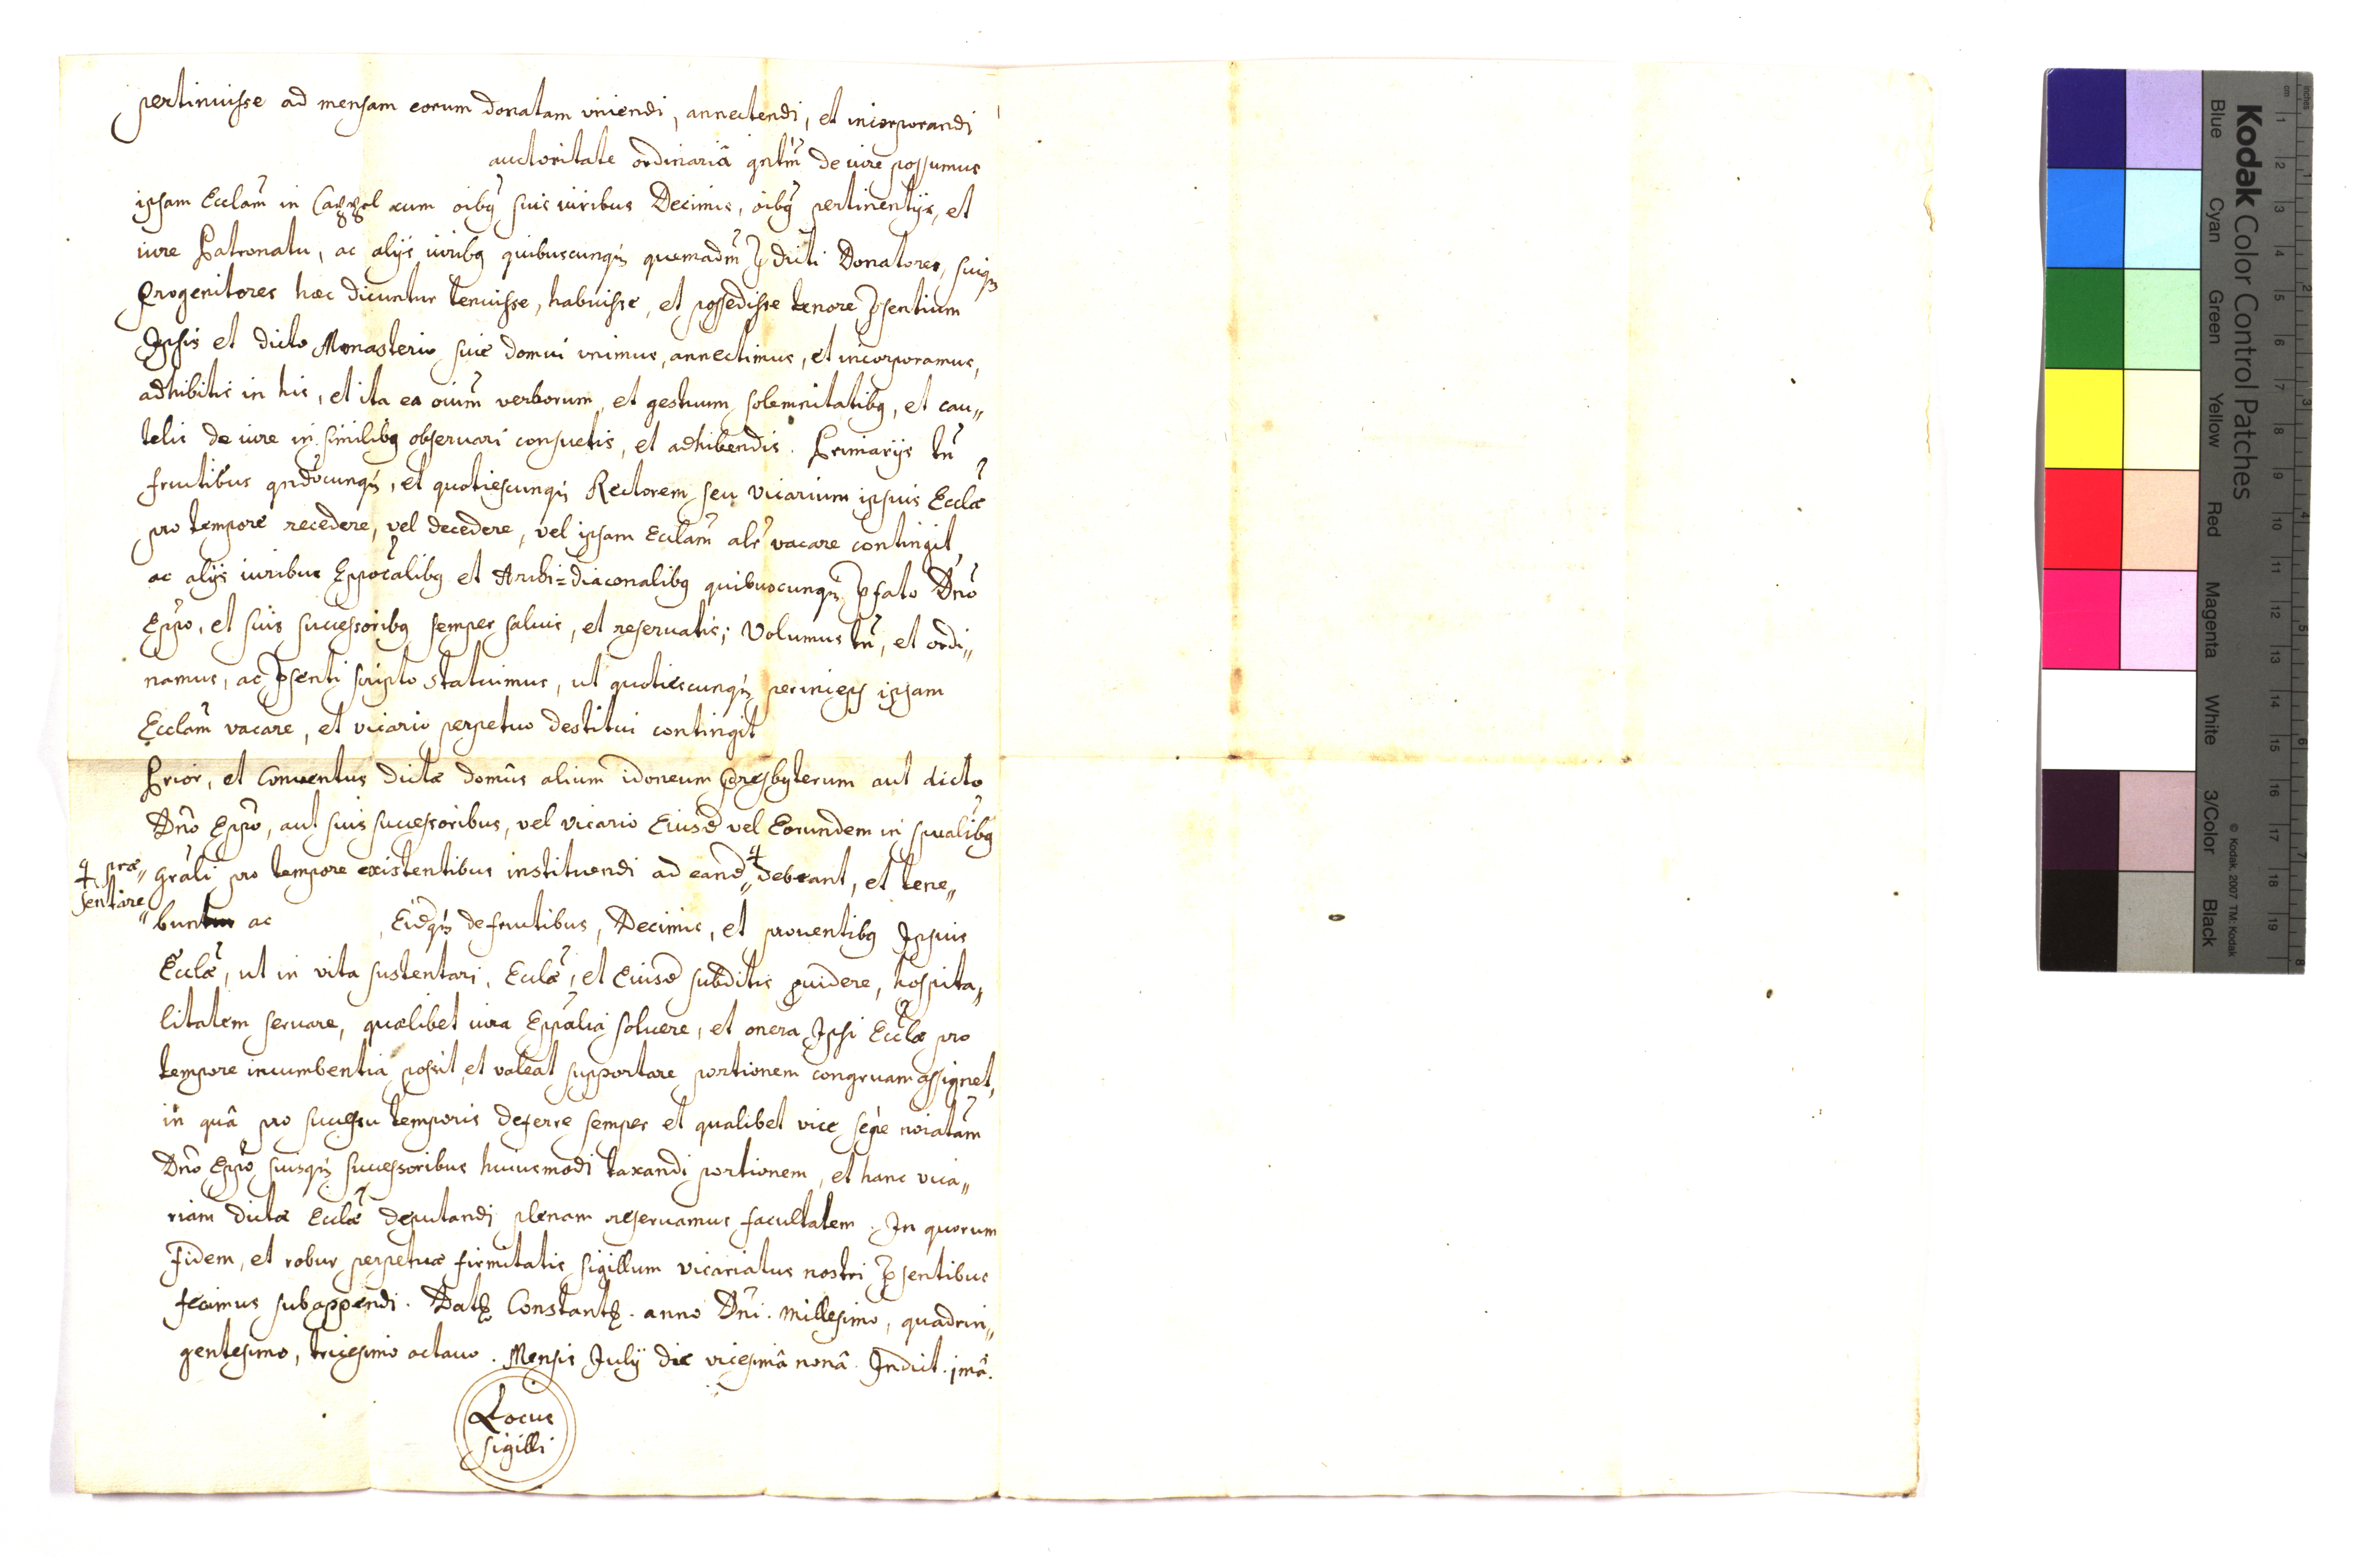 pertinuisse ad mensam eorum donatam uniendi, annectendi, et incorporandi
auctoritate ordinariâ qntm̃ de iure possumus
ipsam Ecclam̃ in Cappel cum oibq̃ suis iuribus Decimis, oibq̃ pertinentijs, et
iure Patronatu, ac alijs iuribq quibuscunqȝ quemadm̃ p̃dicti Donatores, suiqȝ
Progenitores hæc dicuntur tenuisse, habuisse, et possedisse tenore p̃sentium
Ipsis et dicto Monasterio sive domui unimus, annectimus, et incorporamus,
adhibitis in his, et ita ea oium̃ verborum, et gestuum solemnitatibq, et cau„
telis de iure in similibq observari consuetis, et adhibendis. Primarijs tñ
fructibus qndocunqȝ, et quotiescunqȝ Rectorem seu vicarium ipsius Ecclæ̃
pro tempore recedere, vel decedere, vel ipsam Ecclam̃ alr̃ vacare contingit,
ac alijs iuribus Eppocalibq̃ et Archi=diaconalibq quibuscunqȝ p̃fato Dño
Eppo, et suis successoribq semper salvis, et reservatis; Volumus tñ, et ordi„
namus, ac p̃senti scripto statuimus, ut quotiescunqȝ ipsam
Ecclam̃ vacare, et vicario perpetuo destitui contingit
Prior, et Conventus dictæ domûs alium idoneum Presbyterum aut dicto
Dño Eppõ, aut suis successoribus, vel vicario Eiusd̃ vel Eorundem in spualibq̃
grãli pro tempore existentibus instituendi ad eand̃„ ⁺ debeant, et tene„
⁺ præ„
sentare„
bunt ac , Eidqȝ de fructibus, Decimis, et proventibq Ipsius
Ecclæ̃, ut in vita sustentari, Ecclæ̃, et Eiusd̃ subditis p̃uidere, hospita„
litatem servare, quælibet iura Eppalia solvere, et onera Ipsi Ecclæ̃ pro
tempore incumbentia possit, et valeat supportare portionem congruam assignet,
in quâ pro successu temporis deferre semper et qualibet vice sępe noiatam̃
Dño Eppõ suisqȝ successoribus huiusmodi taxandi portionem, et hanc vica„
riam dictæ Ecclæ̃ deputandi plenam reservamus facultatem. In quorum
Fidem, et robur perpetuæ firmitatis sigillum vicariatus nostri p̃sentibus
fecimus subappendi. Datȝ Constantȝ. anno Dñi. millesimo, quadrin„
gentesimo, tricesimo octavo. Mensis Julij die vicesimâ nonâ. Indict. jmâ.
Locus
sigilli
Kodak Color Control Patches
Blue
Cyan
Green
Yellow
Red
Magenta
White
3/Color
Black
© Kodak, 2007 TM: Kodak
inches
cm
1 2 3 4 5 6 7 8 9 10 11 12 13 14 15 16 17 18 19
1 2 3 4 5 6 7 8